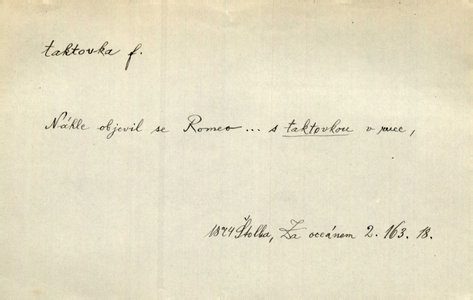 taktovka f.
Náhle objevil se Romeo ... s taktovkou v ruce,
1874 Štolba, Za oceánem 2. 163. 18.